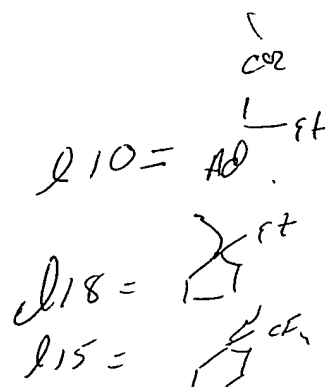 CO2
Et
l10 = Ad
Et
l18 =
l15 =